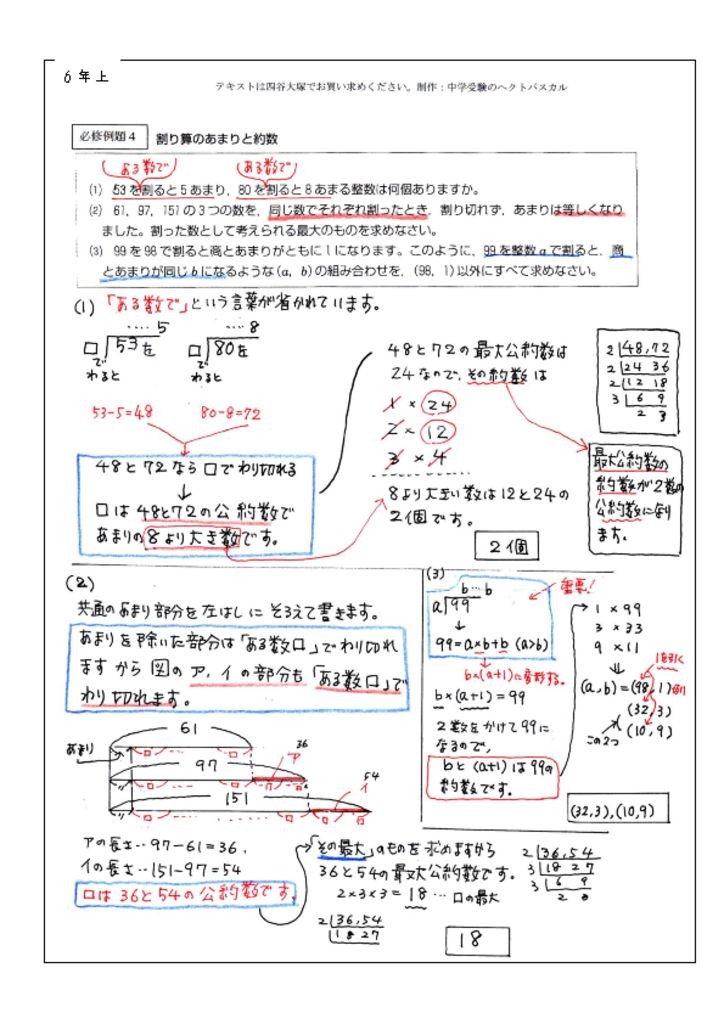 6年上
テキストは四谷大塚でお買い求めください。制作:中学受験のヘクトパスカル
必修例題4 割り算のあまりと約数
ある数で ある数で
(1) 53を割ると5あまり，80を割ると8あまる整数は何個ありますか。
(2) 61，97，151の3つの数を，同じ数でそれぞれ割ったとき，割り切れず，あまりは等しくなり
ました。割った数として考えられる最大のものを求めなさい。
(3) 99を98で割ると商とあまりがともに1になります。このように，99を整数aで割ると，商
とあまりが同じbになるような(a, b)の組み合わせを，(98, 1)以外にすべて求めなさい。
(1) 「ある数で」という言葉が省かれています。
‥‥5 ‥‥8
□ 53を □ 80を
で で
わると わると
53-5=48 80-8=72
48と72なら□でわり切れる
↓
□は48と72の公約数で
あまりの8より大き数です。
48と72の最大公約数は
24なので、その約数は
1 × 24
2 × 12
3 × 4
8より大きい数は12と24の
2個です。
2個
2 48,72
2 24 36
2 12 18
3 6 9
2 3
最大公約数の
約数が2数の
公約数になり
ます。
(2)
共通のあまり部分を左はしにそろえて書きます。
あまりを除いた部分は「ある数□」でわり切れ
ますから図のア,イの部分も「ある数□」で
わり切れます。
61
あまり
36
ア
97
54
イ
151
アの長さ‥97-61=36,
イの長さ‥151-97=54
□は36と54の公約数です。
「その最大」のものを求めますから
36と54の最大公約数です。
2×3×3=18‥□の最大
2 36,54
18 27
2 36,54
3 18 27
3 6 9
2 3
18
(3)
b‥b
a 99
↓
99=a×b+b (a>b)
重要!
b×(a+1)に変形する。
b×(a+1)=99
2数をかけて99に
なるので,
bと(a+1)は99の
約数です。
1 × 99
3 × 33
9 × 11
⇓
1を引く
(a,b)=(98,1)
(32,3)
(10,9)
この2つ
(32,3),(10,9)